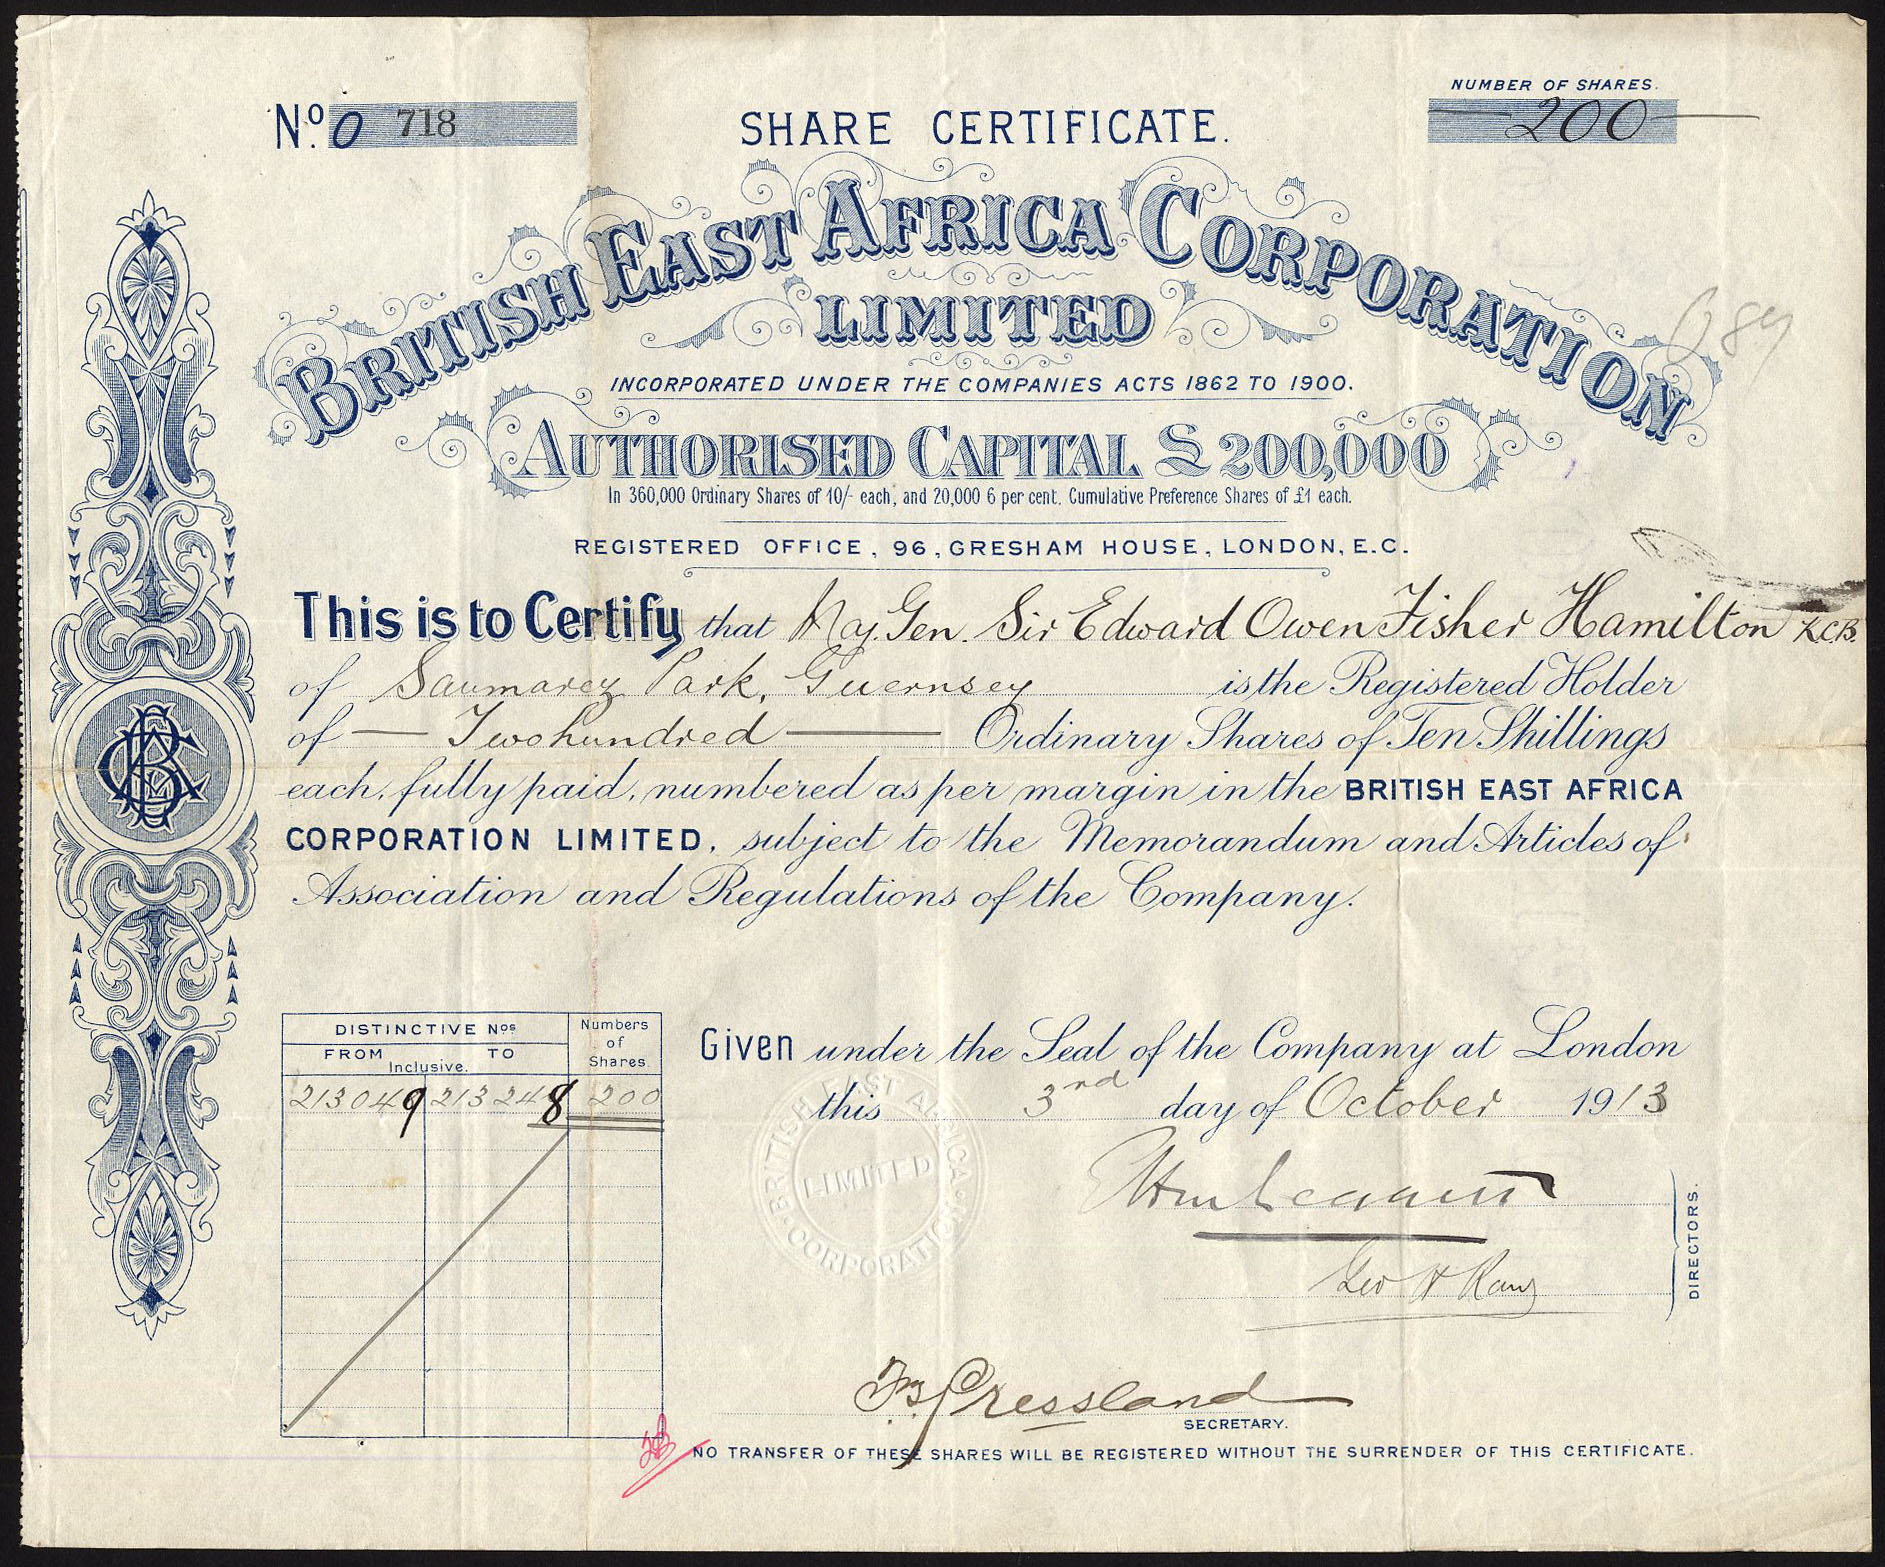 No. O 718
SHARE CERTIFICATE.
NUMBER OF SHARES.
200
BRITISH EAST AFRICA CORPORATION
LIMITED
INCORPORATED UNDER THE COMPANIES ACTS 1862 TO 1900.
AUTHORISED CAPITAL £200,000
In 360,000 Ordinary Shares of 10/- each, and 20,000 6 per cent. Cumulative Preference Shares of £1 each.
REGISTERED OFFICE, 96, GRESHAM HOUSE, LONDON, E.C.
This is to Certify that Maj. Gen. Sir Edward Owen Fisher Hamilton K.C.B.
of Saumarez Park, Guernsey is the Registered Holder
of — Two hundred — Ordinary Shares of Ten Shillings
each, fully paid, numbered as per margin in the BRITISH EAST AFRICA
CORPORATION LIMITED, subject to the Memorandum and Articles of
Association and Regulations of the Company.
DISTINCTIVE Nos
FROM Inclusive. TO
Numbers of Shares.
213049 213248 200
Given under the Seal of the Company at London
this 3rd day of October 1913
BRITISH EAST AFRICA CORPORATION
LIMITED
DIRECTORS.
F.B. Cressland
SECRETARY.
NO TRANSFER OF THESE SHARES WILL BE REGISTERED WITHOUT THE SURRENDER OF THIS CERTIFICATE.